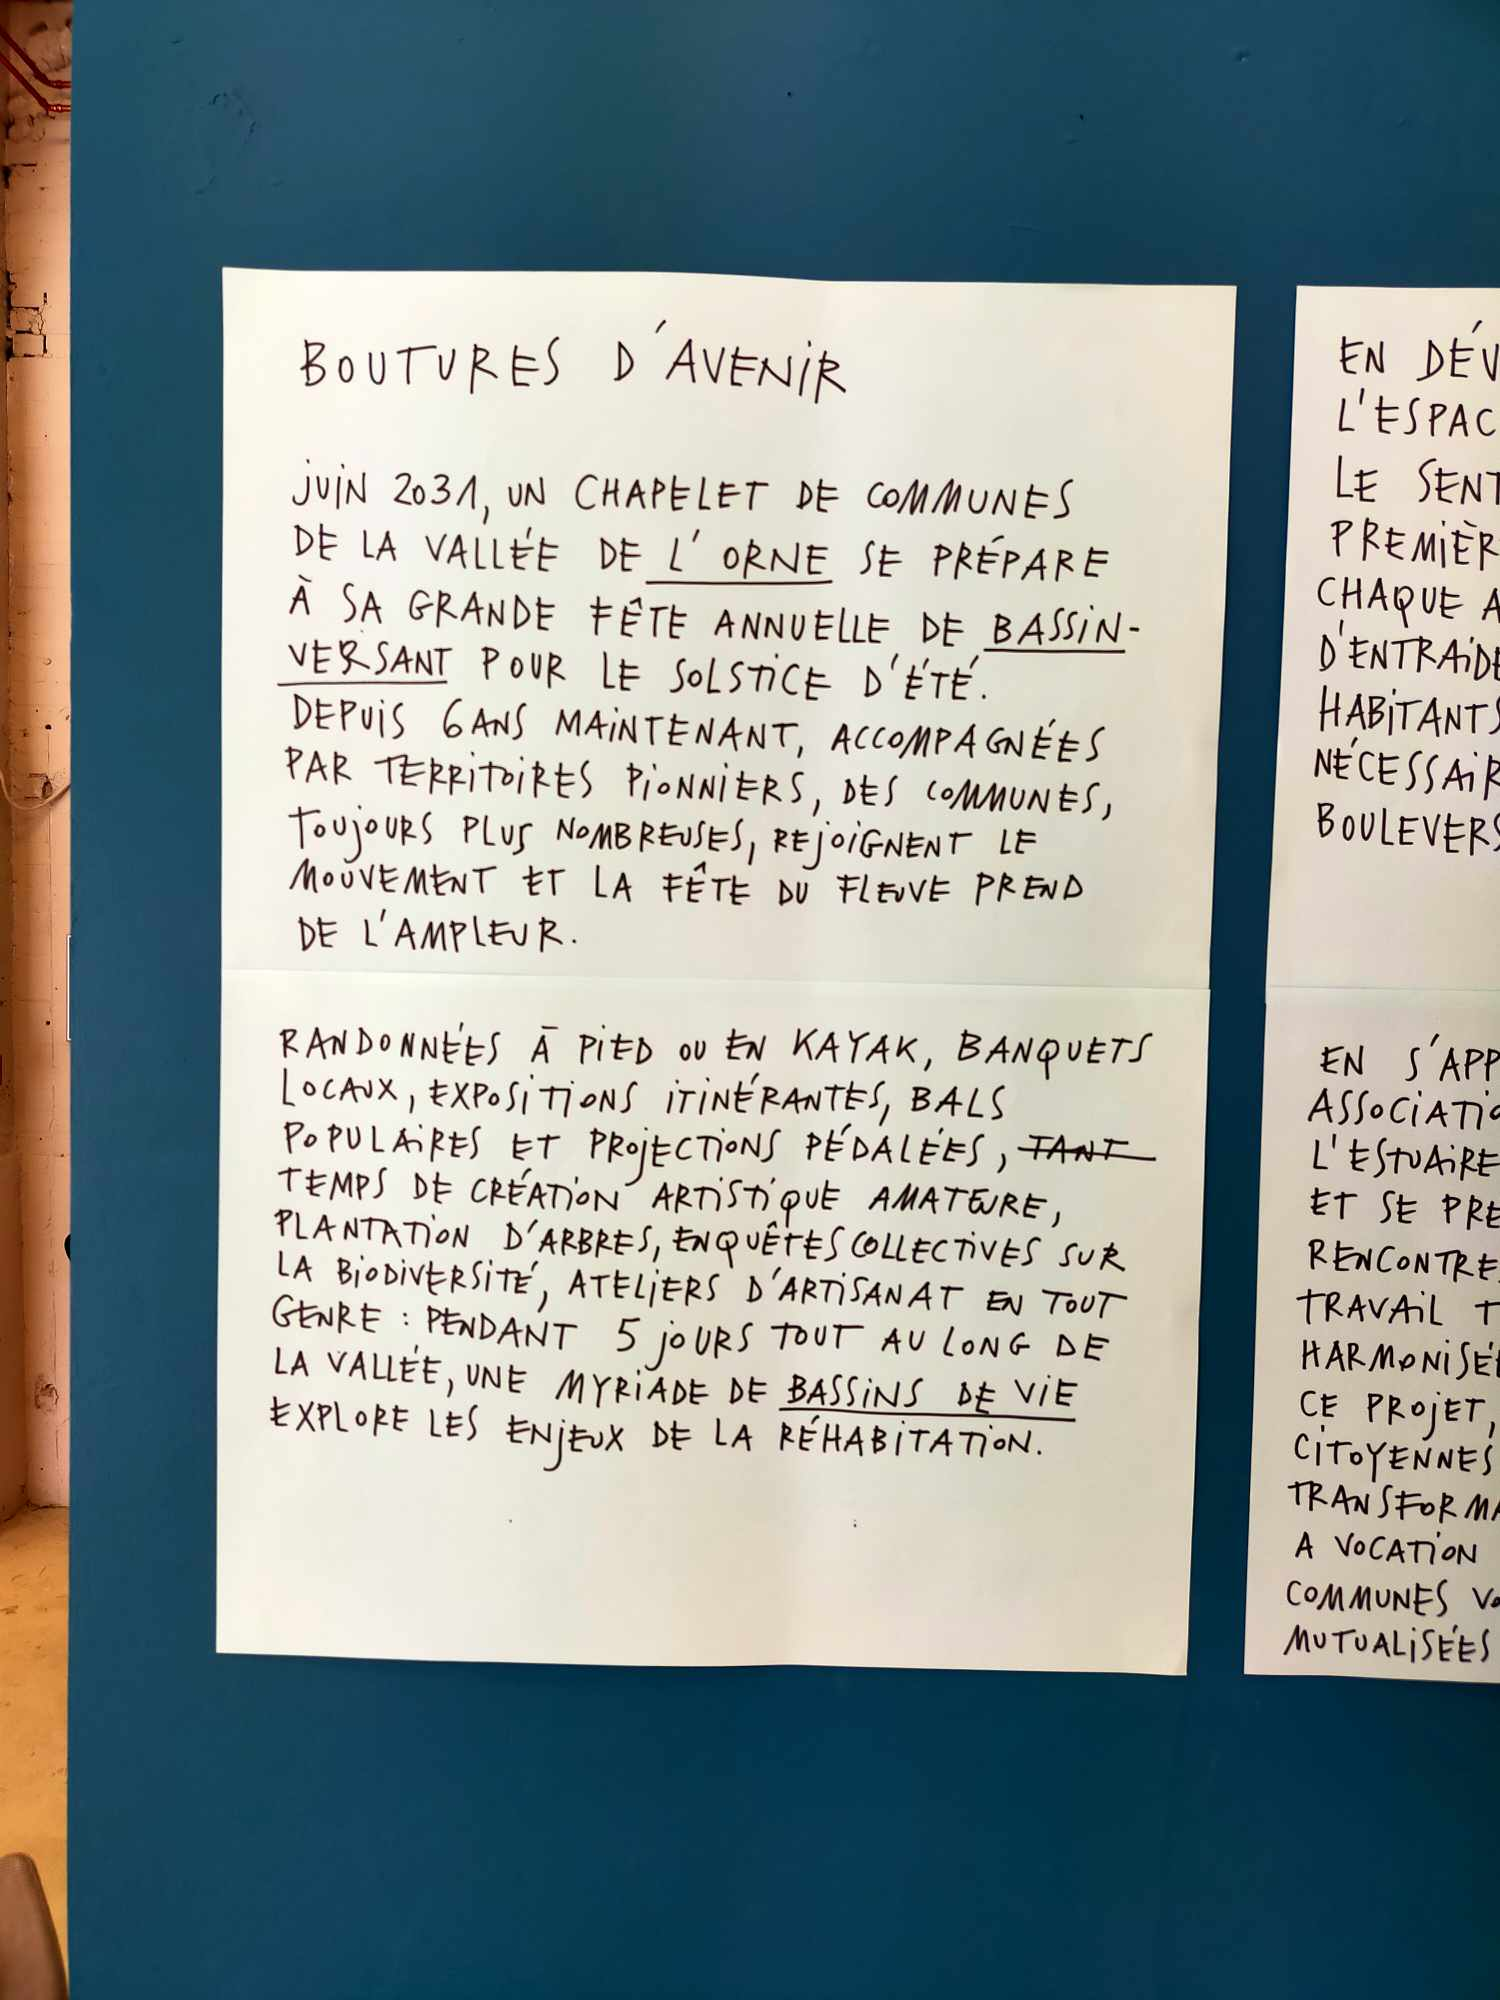 BOUTURES D'AVENIR
JUIN 2031, UN CHAPELET DE COMMUNES
DE LA VALLÉE DE L'ORNE SE PRÉPARE
À SA GRANDE FÊTE ANNUELLE DE BASSIN-
VERSANT POUR LE SOLSTICE D'ÉTÉ.
DEPUIS 6 ANS MAINTENANT, ACCOMPAGNÉES
PAR TERRITOIRES PIONNIERS, DES COMMUNES,
TOUJOURS PLUS NOMBREUSES, REJOIGNENT LE
MOUVEMENT ET LA FÊTE DU FLEUVE PREND
DE L'AMPLEUR.
RANDONNÉES À PIED OU EN KAYAK, BANQUETS
LOCAUX, EXPOSITIONS ITINÉRANTES, BALS
POPULAIRES ET PROJECTIONS PÉDALÉES, TANT
TEMPS DE CRÉATION ARTISTIQUE AMATEURE,
PLANTATION D'ARBRES, ENQUÊTES COLLECTIVES SUR
LA BIODIVERSITÉ, ATELIERS D'ARTISANAT EN TOUT
GENRE : PENDANT 5 JOURS TOUT AU LONG DE
LA VALLÉE, UNE MYRIADE DE BASSINS DE VIE
EXPLORE LES ENJEUX DE LA RÉHABITATION.
EN DÉV
L'ESPAC
LE SENT
PREMIÈR
CHAQUE A
D'ENTRAIDE
HABITANTS
NÉCESSAIR
BOULEVERS
EN S'APP
ASSOCIATIO
L'ESTUAIRE
ET SE PRE
RENCONTRE
TRAVAIL T
HARMONISÉE
CE PROJET,
CITOYENNES
TRANSFORMA
A VOCATION
COMMUNES VO
MUTUALISÉES